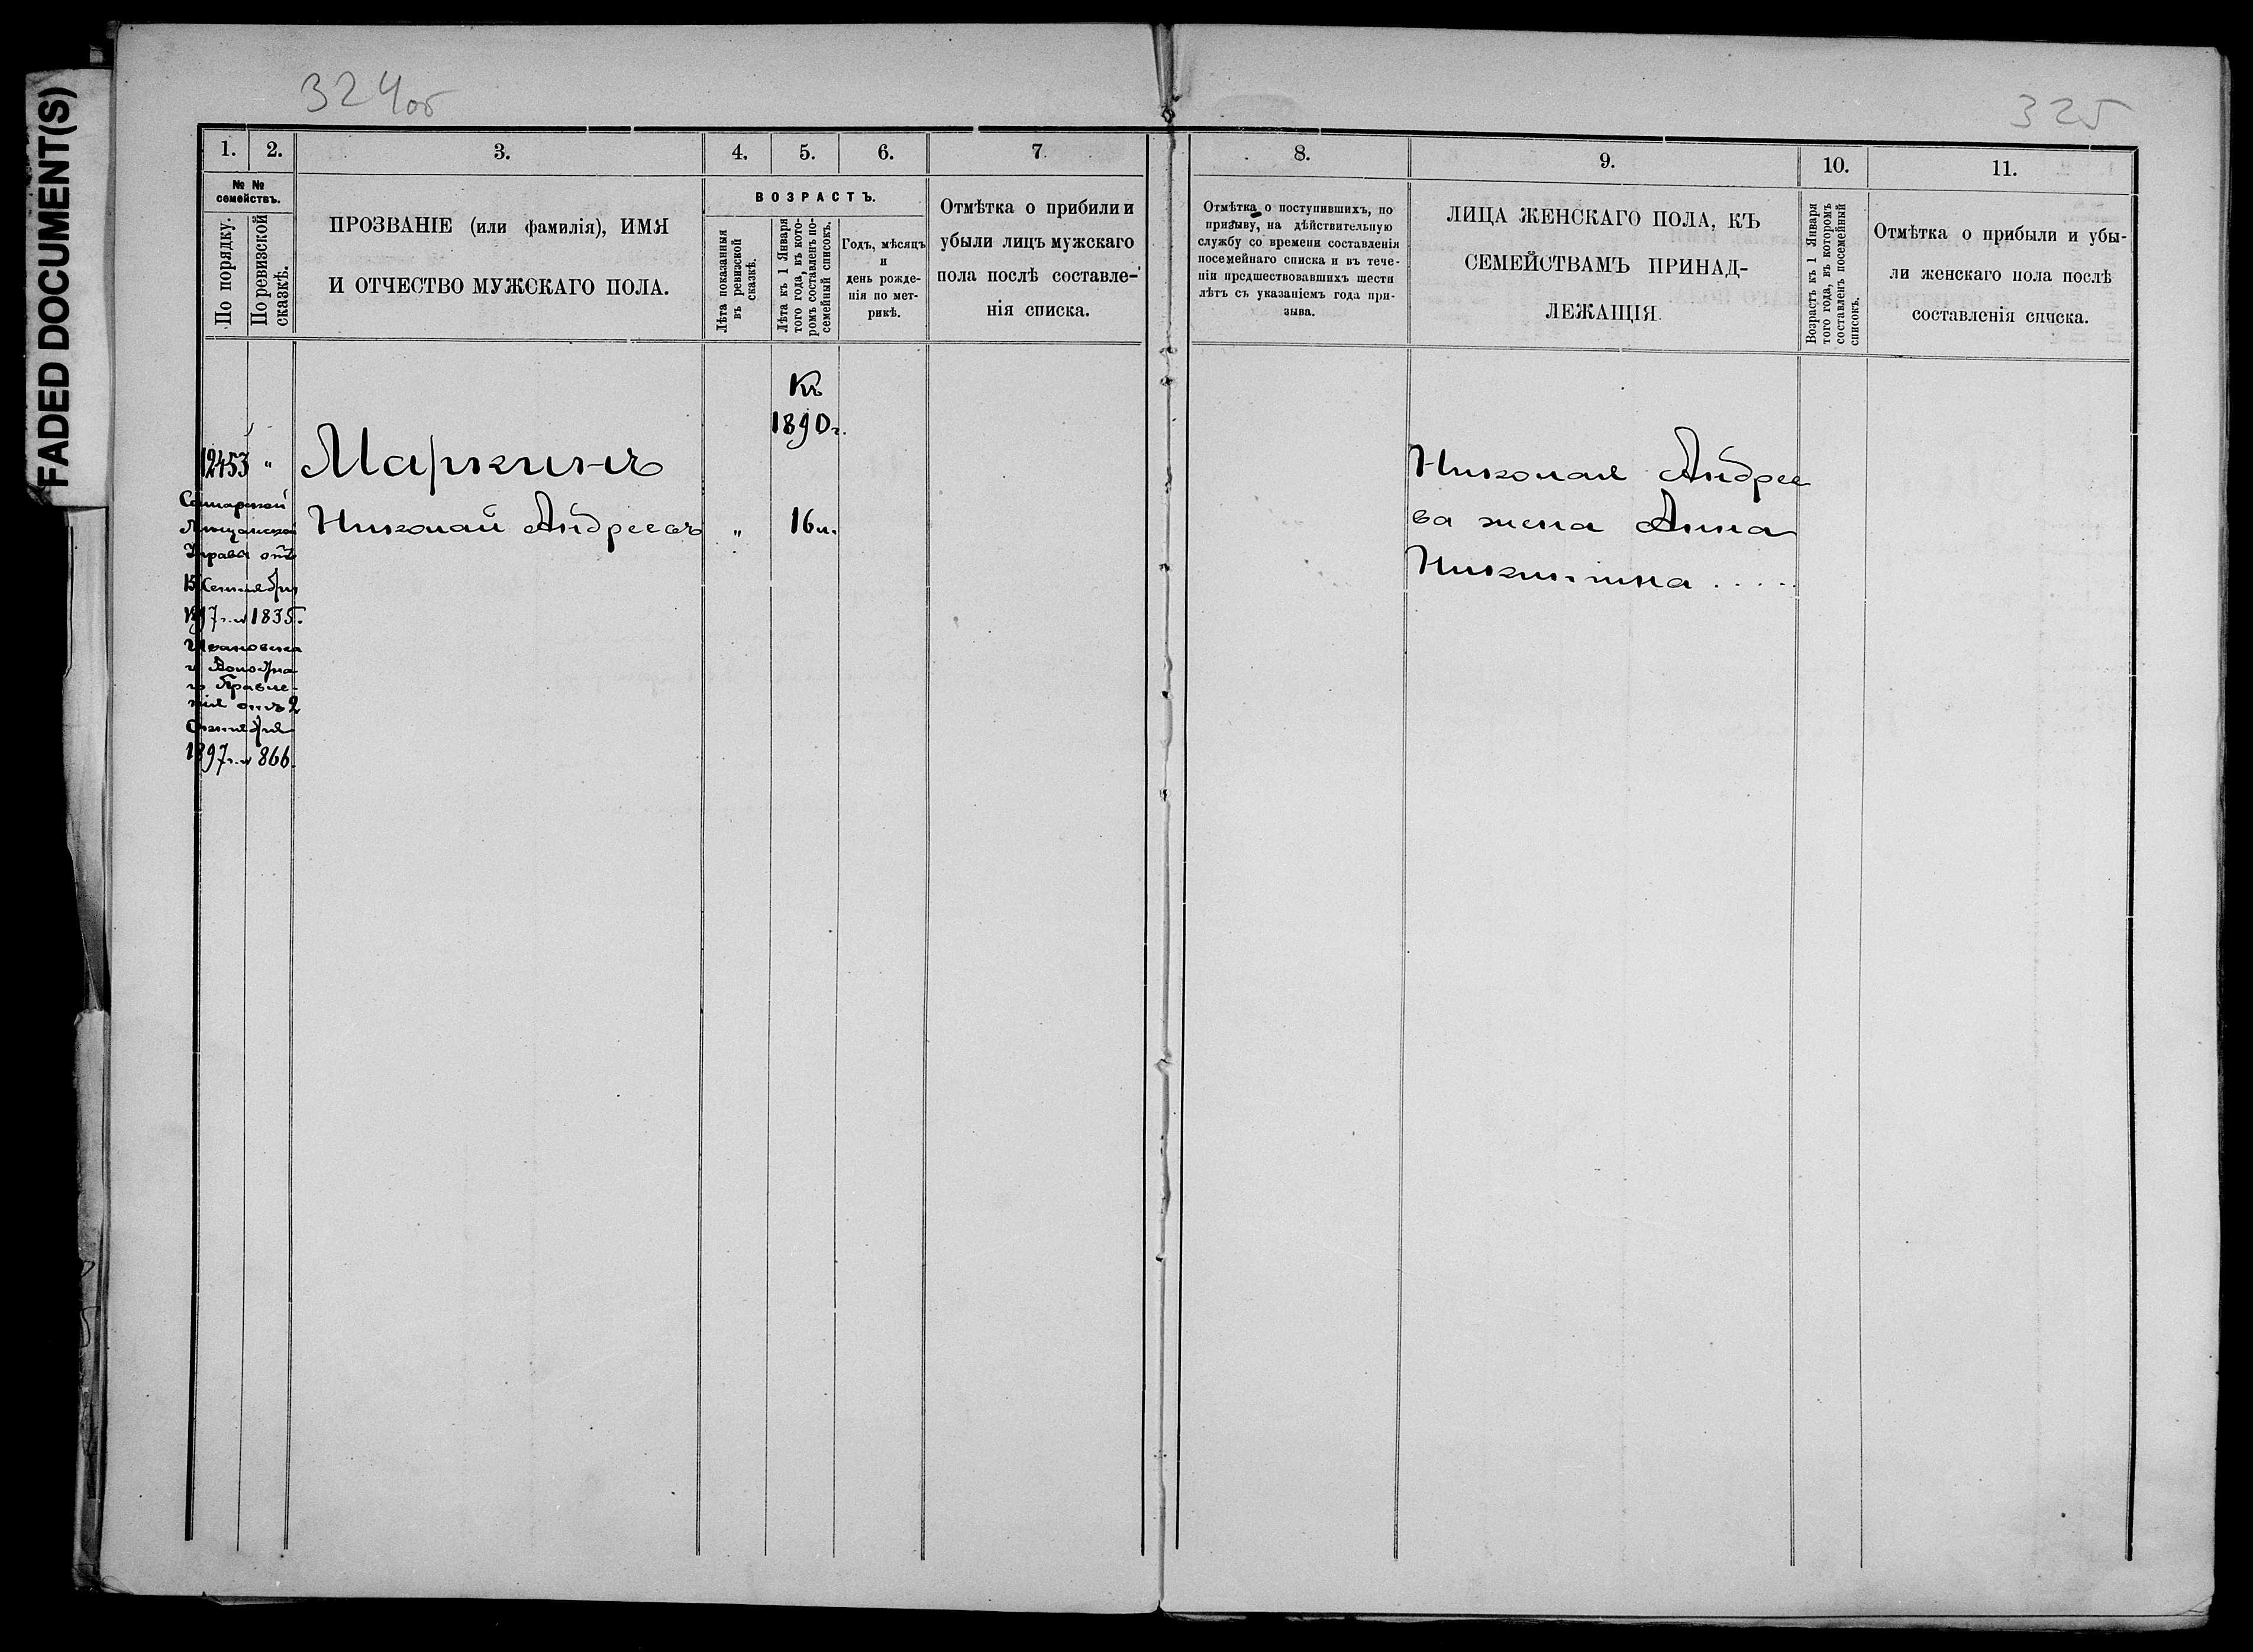 FADED DOCUMENT(S)
324об
325
1. 2. 3. 4. 5. 6. 7.
№ № семействъ.
По порядку.
По ревизской сказкѣ.
ПРОЗВАНІЕ (или фамилія), ИМЯ
И ОТЧЕСТВО МУЖСКАГО ПОЛА.
ВОЗРАСТЪ.
Лѣта показанныя
въ ревизской
сказкѣ.
Лѣта къ 1 Января
того года, въ кото-
ромъ составленъ по-
семейный списокъ.
Годъ, мѣсяцъ
и
день рожде-
нія по мет-
рикѣ.
Отмѣтка о прибыли и
убыли лицъ мужскаго
пола послѣ составле-
нія списка.
8. 9. 10. 11.
Отмѣтка о поступившихъ, по
призыву, на дѣйствительную
службу со времени составленія
посемейнаго списка и въ тече-
ніи предшествовавшихъ шести
лѣтъ съ указаніемъ года при-
зыва.
ЛИЦА ЖЕНСКАГО ПОЛА, КЪ
СЕМЕЙСТВАМЪ ПРИНАД-
ЛЕЖАЩІЯ.
Возрастъ къ 1 Января
того года, въ которомъ
составленъ посемейный
списокъ.
Отмѣтка о прибыли и убы-
ли женскаго пола послѣ
составленія списка.
Къ
1890г.
12453 " Маркинъ
Николай Андреевъ " 16
Самарской
Мѣщанской
Управы отъ
15 Сентября
1897г. № 1835.
Ивановска
го Волостна
го Правле-
нія отъ 2
Октября
1897г. № 866.
Николая Андрее
ва жена Анна
Никитина . . . . .